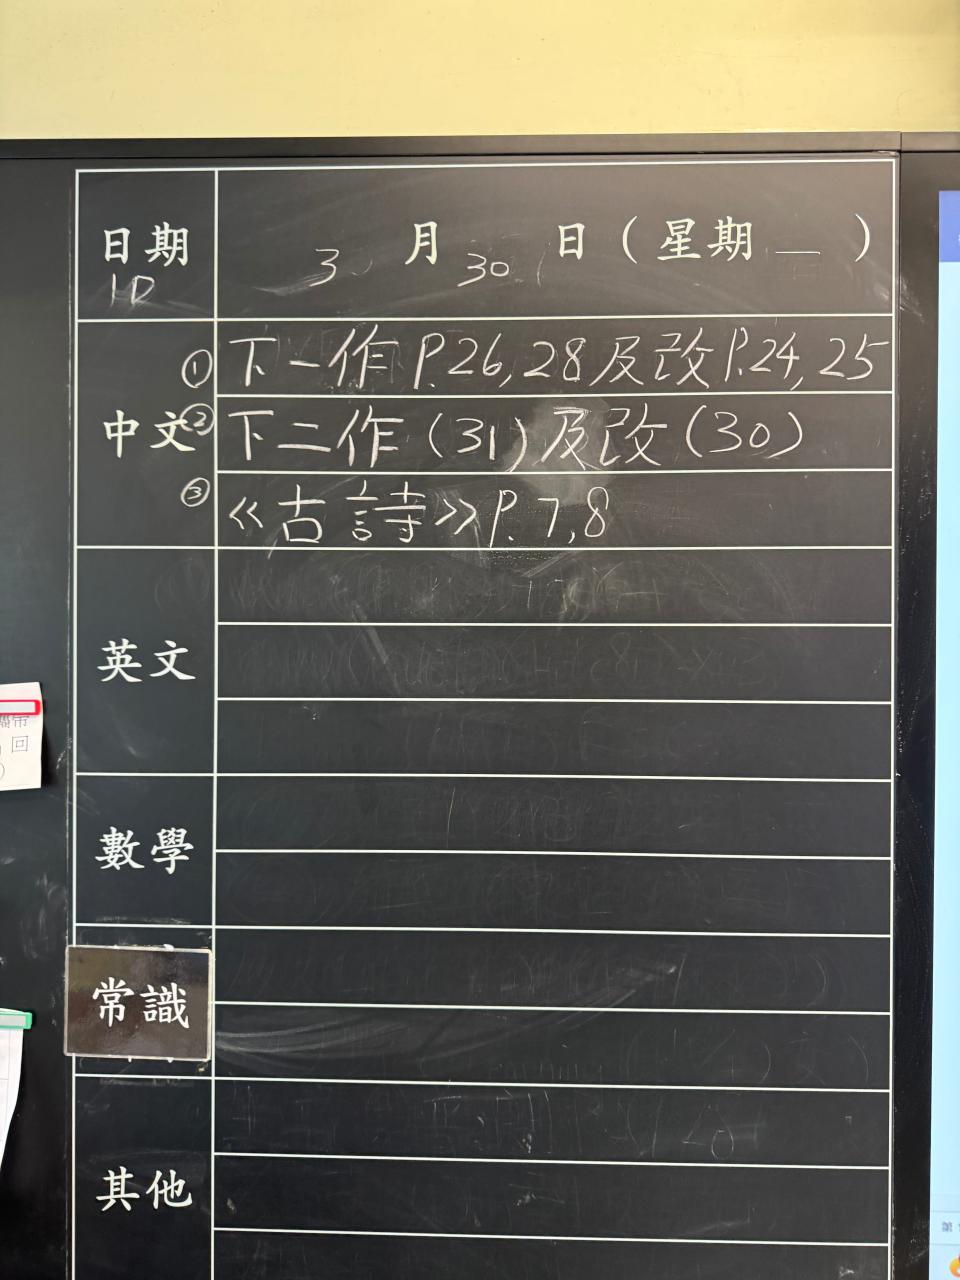 日期 3月30日(星期一)
1D
中文
① 下一作 P.26,28及改P.24,25
② 下二作(31)及改(30)
③ 《古詩》P.7,8
英文
數學
常識
其他
回